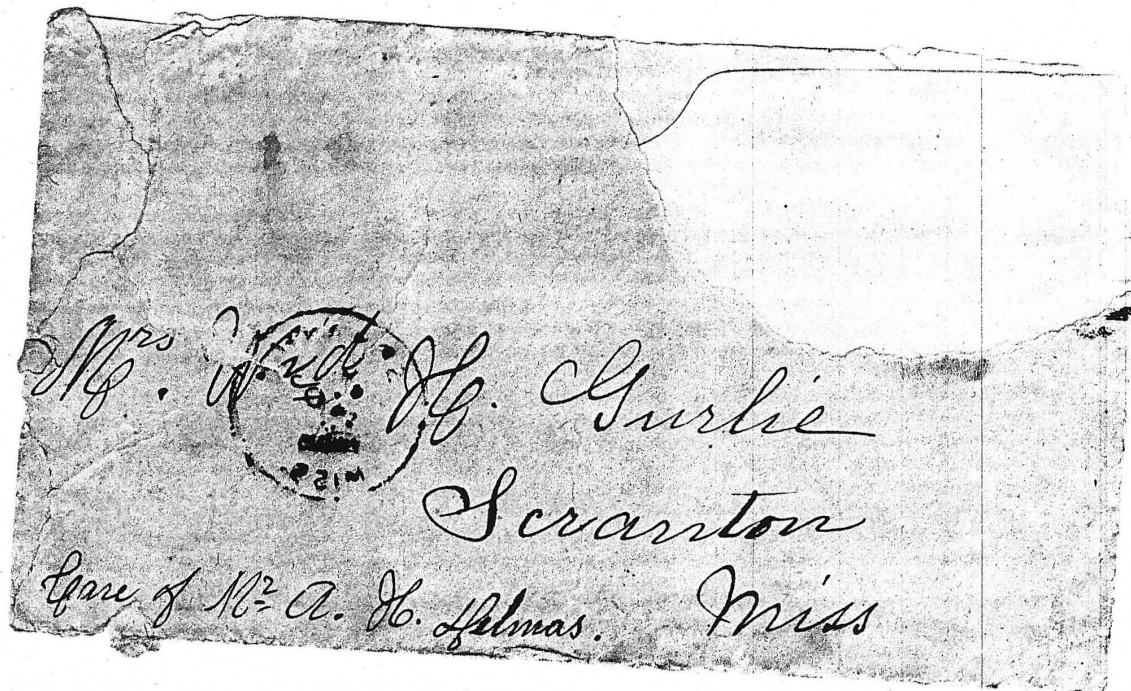 Mrs. Wid. H. Gurlie
Scranton
Miss
Care of Mr A. H. Delmas.
MISS